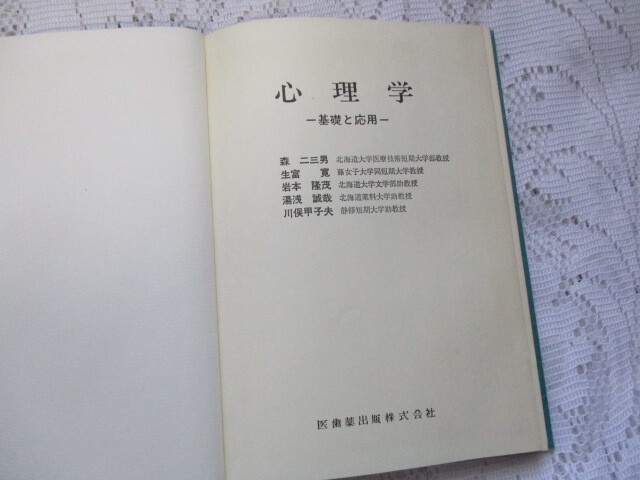 心理学
―基礎と応用―
森 二三男 北海道大学医療技術短期大学部教授
生富 寛 藤女子大学同短期大学教授
岩本 隆茂 北海道大学文学部助教授
湯浅 誠哉 北海道薬科大学助教授
川俣甲子夫 静修短期大学助教授
医歯薬出版株式会社